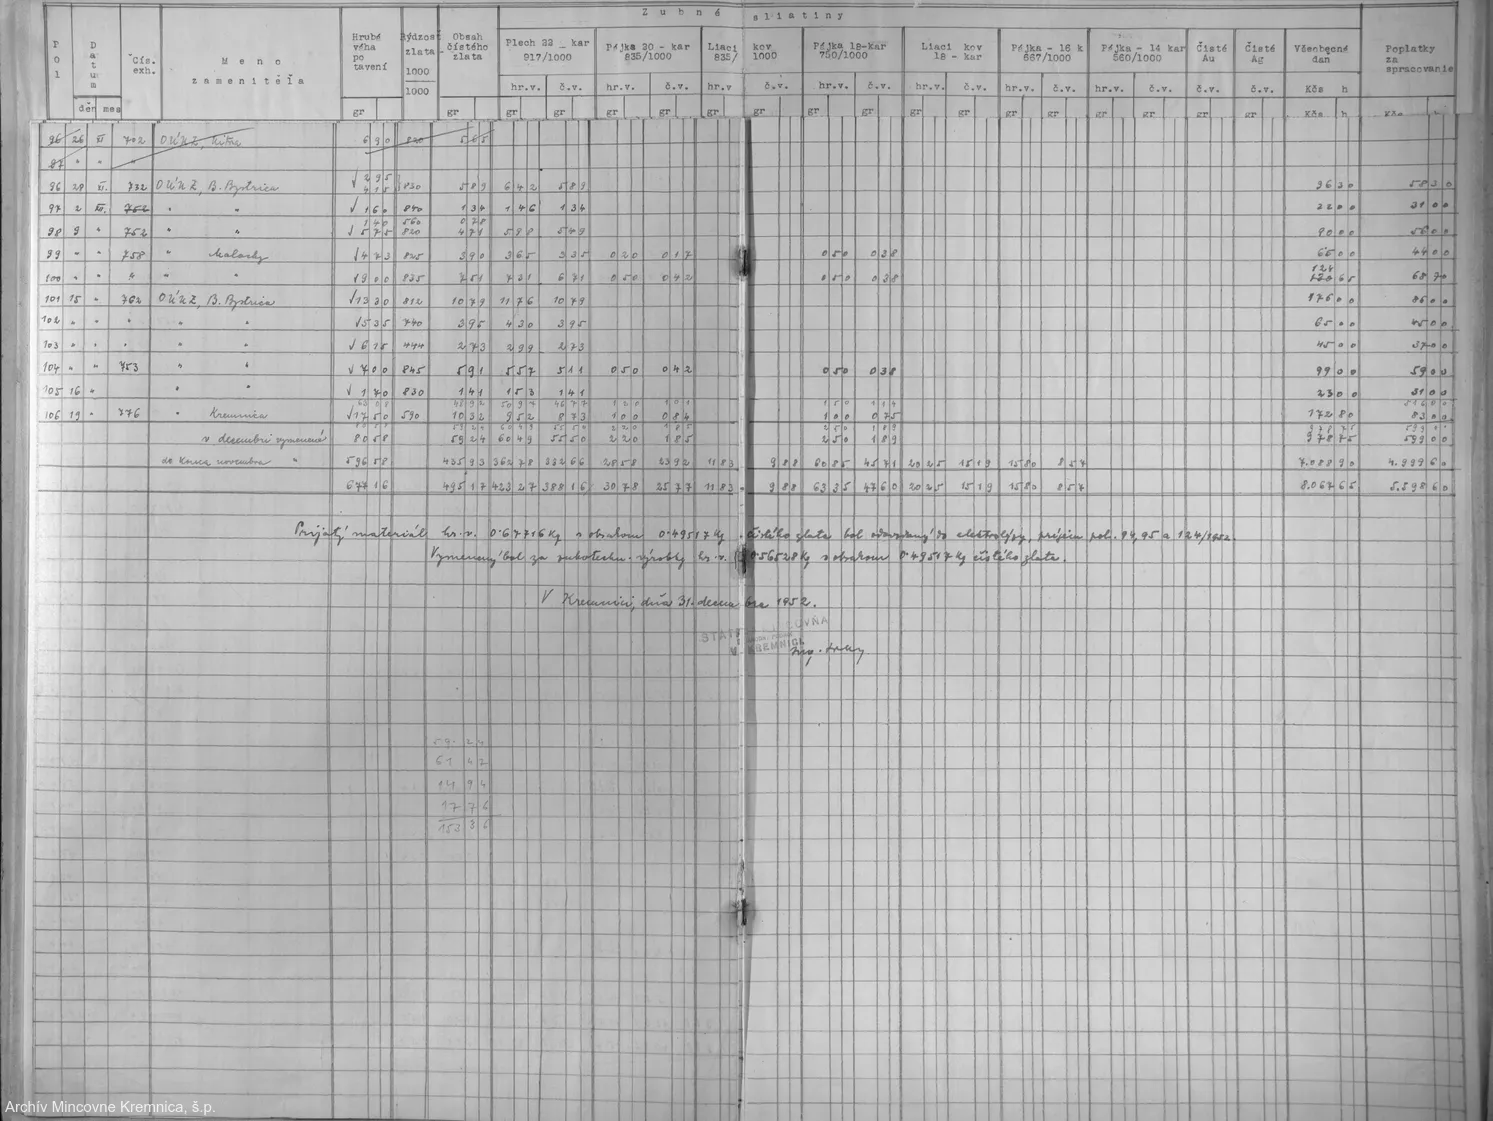 Zubné sliatiny
Pol Datum Čís. exh. Meno zamenitéľa Hrubé váha po tavení Rýdzosť zlata 1000 1000 Obsah čistého zlata Plech 22 - kar 917/1000 Pájka 20 - kar 835/1000 Liaci kov 835/1000 Pájka 18-kar 750/1000 Liaci kov 18 - kar Pájka - 16 k 667/1000 Pájka - 14 kar 560/1000 Čisté Au Čisté Ag Všeobecná dan Poplatky za spracovanie
deň mes hr.v. č.v. hr.v. č.v. hr.v č.v. hr.v. č.v. hr.v. č.v. hr.v. č.v. hr.v. č.v. č.v. č.v. Kčs h
gr gr gr gr gr gr gr gr gr gr gr gr gr gr gr gr gr gr Kčs h Kčs h
96 26 XI 702 OÚNZ, Nitra 6 90 820 5 65
97 " " "
295
96 28 XI. 732 OÚNZ, B. Bystrica √ 415 820 5 89 6 42 5 89 96 30 58 30
97 2 XII. 752 " " √ 1 60 840 1 34 1 46 1 34 22 00 31 00
140 560 078
98 9 " 752 " " √ 5 75 820 4 71 5 88 5 49 90 00
99 " " 758 " Malacky √ 4 73 825 3 90 3 65 3 35 0 20 0 17 0 50 0 38 65 00 44 00
100 " " " " " 9 00 835 7 51 7 31 6 71 0 50 0 42 0 50 0 38 68 70
101 15 " 762 OÚNZ, B. Bystrica √ 13 30 812 10 79 11 76 10 79 176 00 86 00
102 " " " " " √ 5 35 740 3 95 4 30 3 95 65 00 45 00
103 " " " " " √ 6 15 444 2 73 2 99 2 73 45 00 37 00
104 " " 753 " " √ 7 00 845 5 91 5 57 5 11 0 50 0 42 0 50 0 38 99 00 59 00
105 16 " " " √ 1 70 830 1 41 1 53 1 41 23 00 31 00
106 19 " 776 " Kremnica √ 17 50 590 10 32 9 52 8 73 1 00 0 84 1 00 0 75 172 80 83 00
v decembri vymenené 80 58 59 24 60 49 55 50 2 20 1 85 2 50 1 89 978 75 599 00
do konca novembra " 596 58 435 93 362 78 332 66 28 58 23 92 11 83 9 88 60 85 45 71 20 25 15 19 15 80 8 57 7.088 90 4.999 60
677 16 495 17 423 27 388 16 30 78 25 77 11 83 9 88 63 35 47 60 20 25 15 19 15 80 8 57 8.067 65 5.598 60
Prijatý materiál hr. v. 0.67716 Kg s obsahom 0.49517 Kg čistého zlata bol odovzdaný do elektrolýzy, príjem pol. 94, 95 a 124/1952.
Vymenený bol za zubotechn. výrobky hr. v. 0.56528 Kg s obsahom 0.49517 Kg čistého zlata.
V Kremnici, dňa 31. decembra 1952.
V KREMNICI
59 24
61 42
14 94
17 76
153 36
Archív Mincovne Kremnica, š.p.